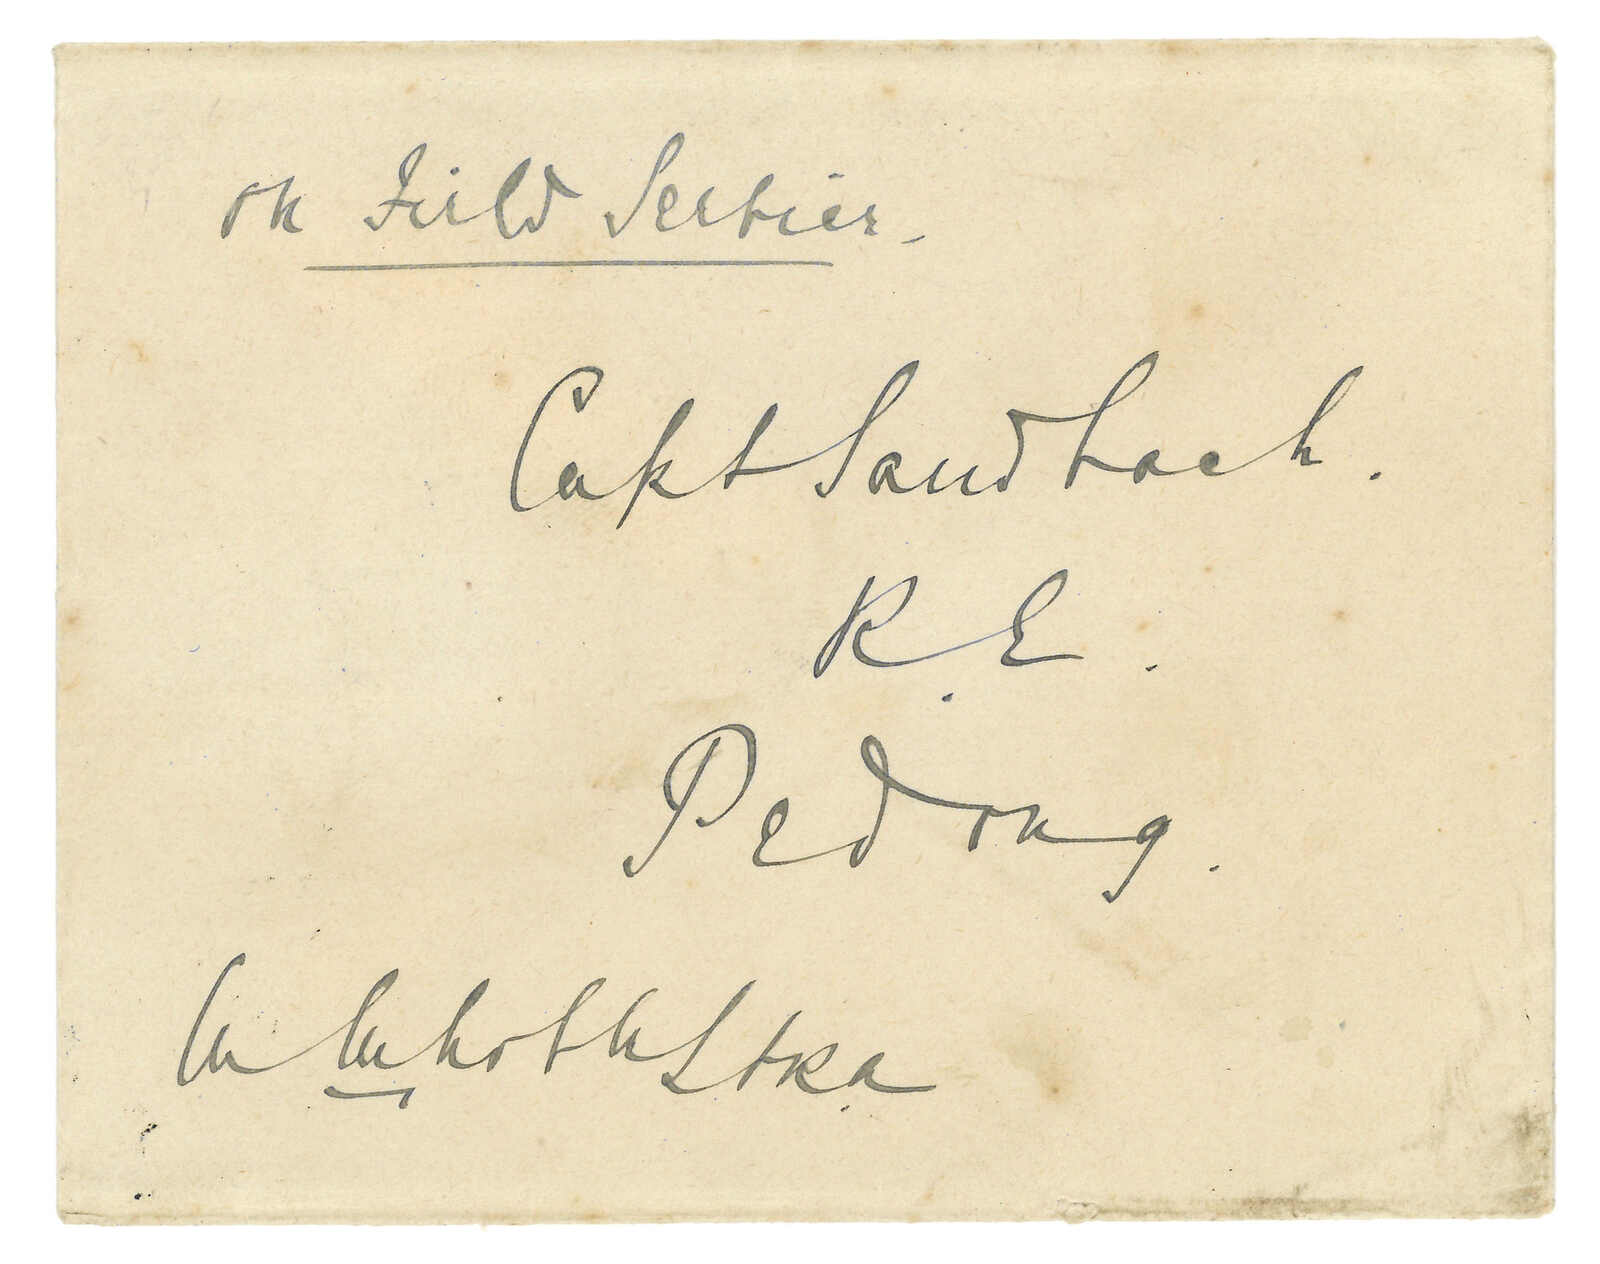 On Field Service.
Capt Sandbach.
R.E.
Pedong.